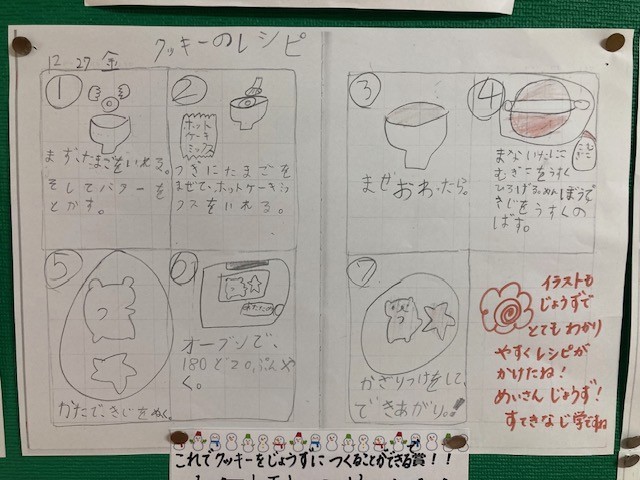 クッキーのレシピ
12 27 金
①
まず、たまごをいれる。
そしてバターを
とかす。
②
ホット
ケーキ
ミックス
つぎにたまごを
まぜて、ホットケーキミッ
クスをいれる。
③
まぜおわったら。
④
こむぎこ
まないたにこ
むぎこをうすく
ひろげる。めんぼうで
きじをうすくの
ばす。
⑤
かたで、きじをぬく。
⑥
オーブンで、
180ど20ぷんや
く。
⑦
かざりつけをして、
できあがり。!!
イラストも
じょうずで
とてもわかり
やすくレシピが
かけたね!
めいさんじょうず!
すてきなじ学ですね
これでクッキーをじょうずにつくることができる賞!!